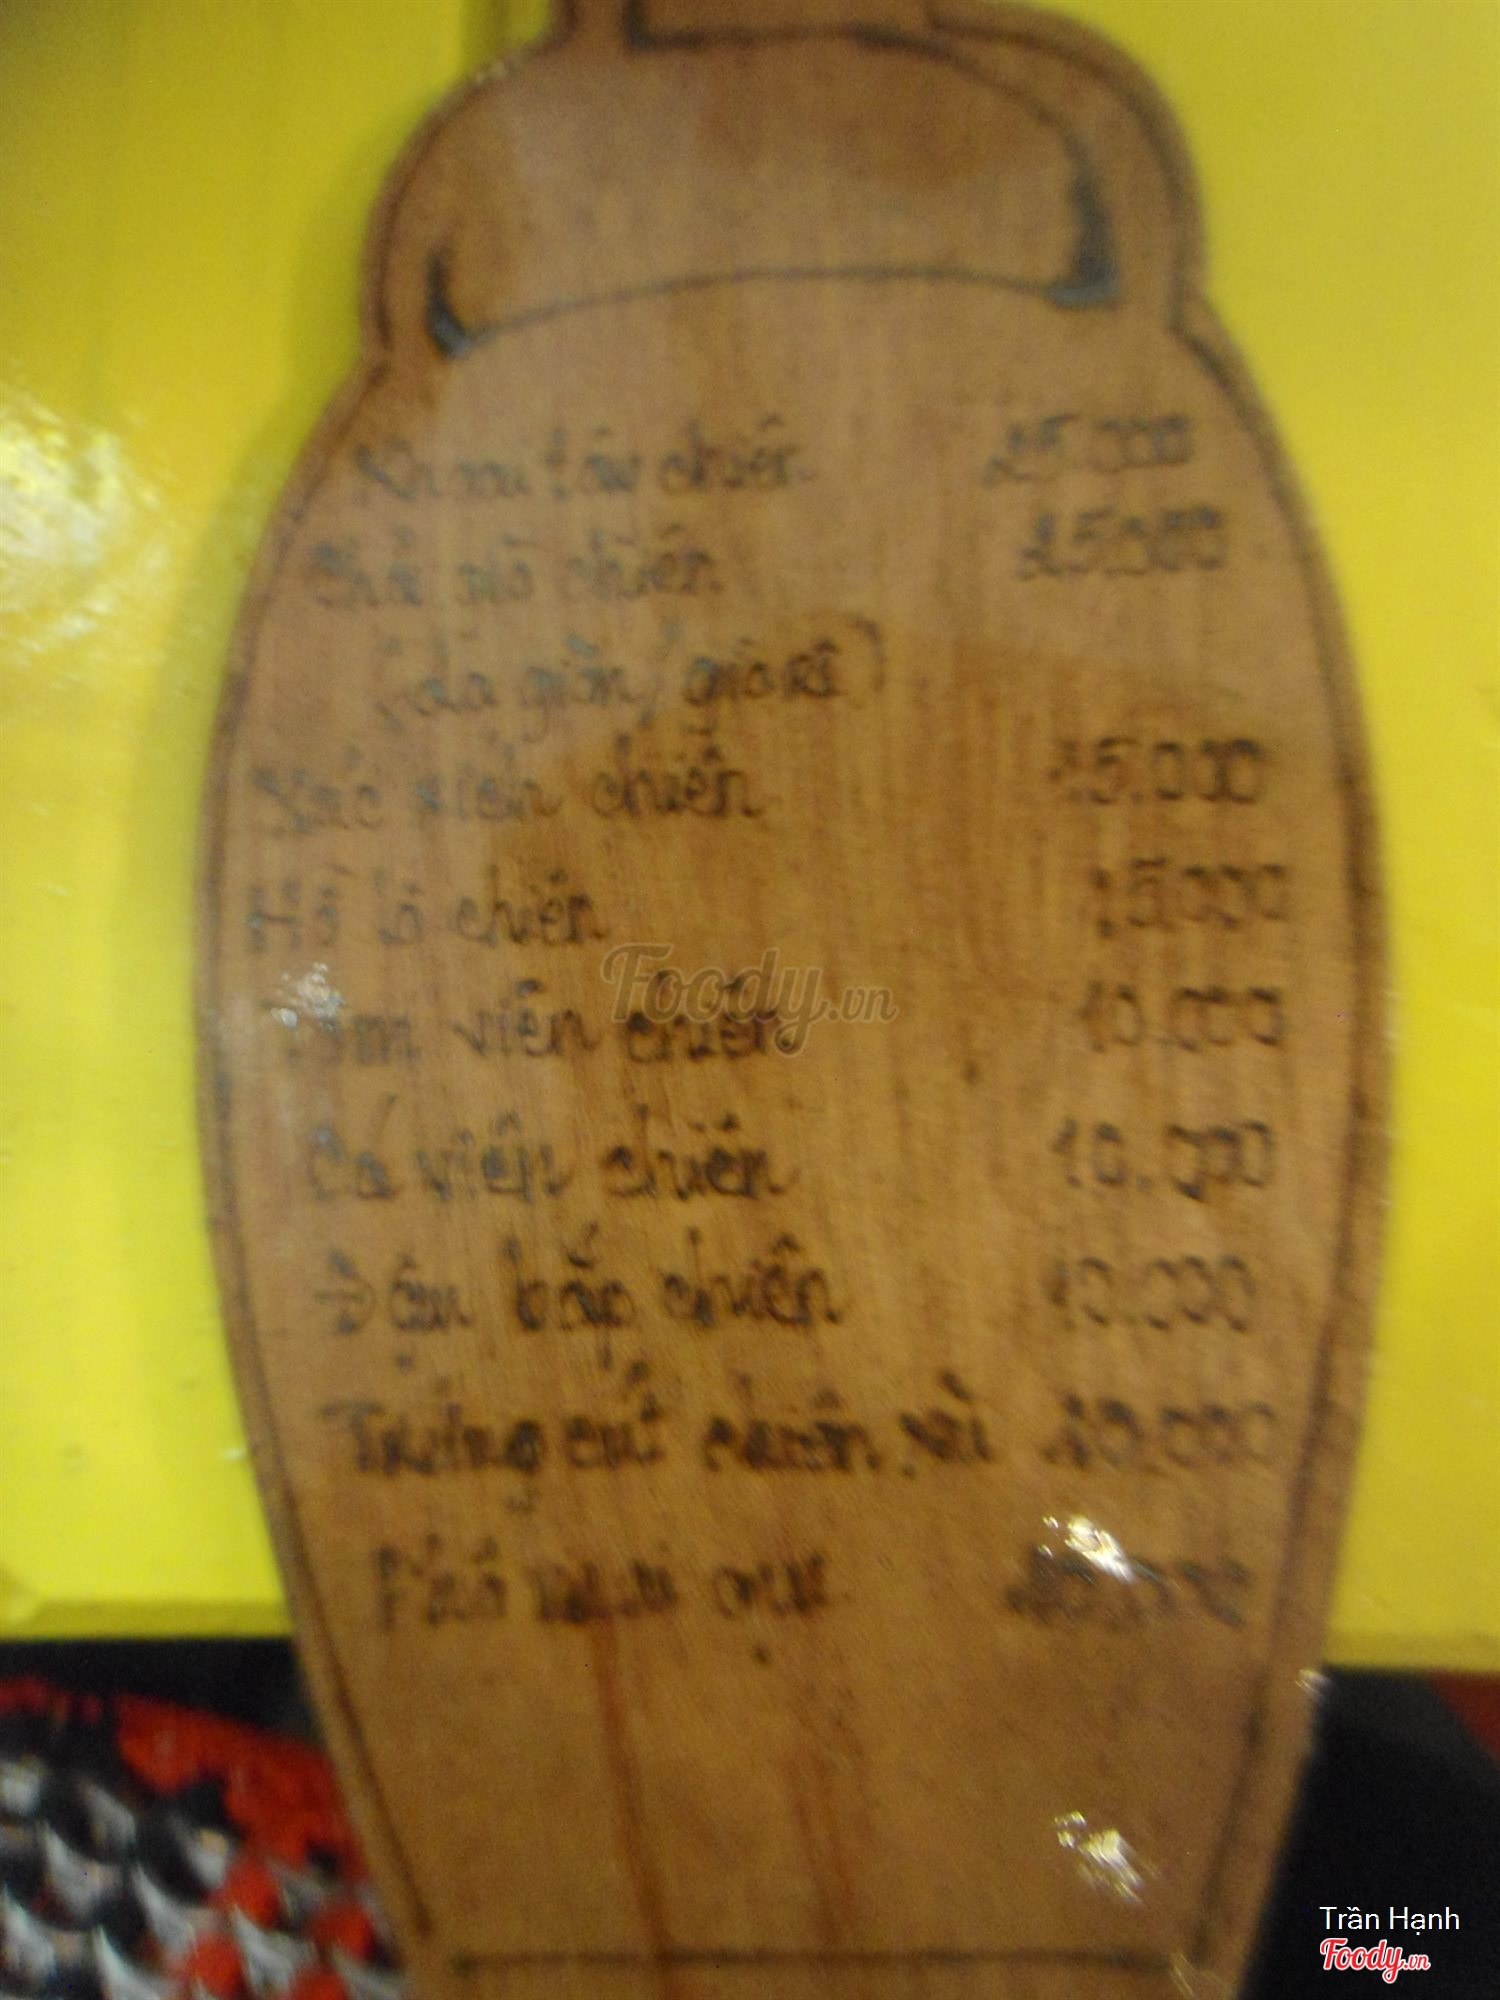 Khoai tây chiên 25.000
Chả giò chiên 25.000
(da giòn, giò rế)
Xúc xích chiên 15.000
Hồ lô chiên 15.000
Tôm viên chiên 10.000
Cá viên chiên 10.000
Đậu bắp chiên 10.000
Trứng cút chiên
Foody.vn
Trần Hạnh
Foody.vn